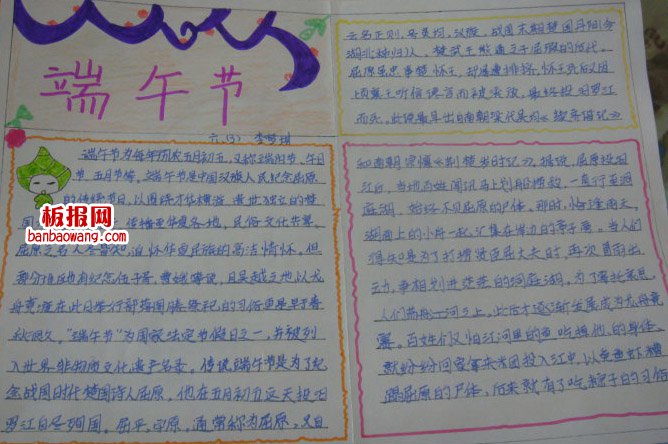 端午节
六(3)
端午节为每年农历五月初五,又称端阳节、午日
节、五月节等。端午节是中国汉族人民纪念屈原
的传统节日,以围绕才华横溢、遗世独立的楚
国
传播至华夏各地,民俗文化共享,
屈原之名人尽皆知,追怀华夏民族的高洁情怀。但
部分地区也有纪念伍子胥、曹娥等说,且吴越之地以龙
舟竞渡在此日举行部落图腾祭祀的习俗更是早于春
秋很久。“端午节”为国家法定节假日之一,并被列
入世界非物质文化遗产名录。传说端午节是为了纪
念战国时代楚国诗人屈原,他在五月初五这天投汨
罗江自尽殉国。屈平,字原,通常称为屈原,又自
云名正则,号灵均,汉族,战国末期楚国丹阳(今
湖北秭归)人,楚武王熊通之子屈瑕的后代。
屈原虽忠事楚怀王,却屡遭排挤,怀王死后又因
顷襄王听信谗言而被流放,最终投汨罗江
而死。此说最早出自南朝梁代吴均《续齐谐记》
和南朝宗懔《荆楚岁时记》。据说,屈原投汨罗
江后,当地百姓闻讯马上划船捞救,一直行至洞
庭湖,始终不见屈原的尸体。那时,恰逢雨天,
湖面上的小舟一起汇集在岸边的亭子旁。当人们
得知是为了打捞贤臣屈大夫时,再次冒雨出
动,争相划进茫茫的洞庭湖。为了寄托哀思,
人们荡舟江河之上,此后才逐渐发展成为龙舟竞
赛。百姓们又怕江河里的鱼吃掉他的身体,
就纷纷回家拿来米团投入江中,以免鱼虾糟
蹋屈原的尸体,后来就有了吃粽子的习俗
板报网
banbaowang.com